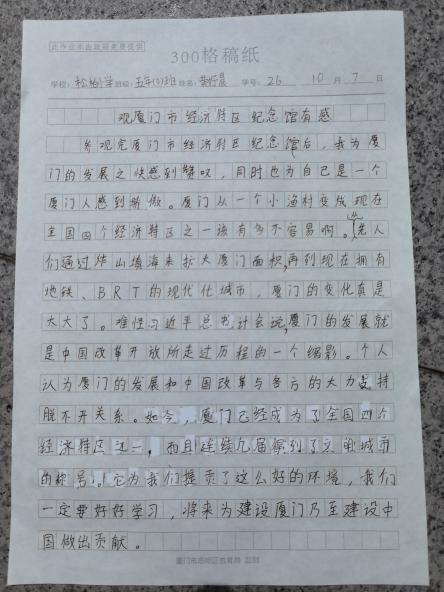 此作业本由政府免费提供
300格稿纸
学校：松柏小学 班级：五年(3)班 姓名： 学号：26 10月7日
观厦门市经济特区纪念馆有感
参观完厦门市经济特区纪念馆后，我为厦
门的发展之快感到赞叹，同时也为自已是一个
厦门人感到骄傲。厦门从一个小渔村变成现在
全国四个经济特区之一该有多不容易啊。老人
们通过炸山填海来扩大厦门面积，再到现在拥有
地铁、BRT的现代化城市，厦门的变化真是
太大了。难怪习近平总书计会说，厦门的发展就
是中国改革开放所走过历程的一个缩影。个人
认为厦门的发展和中国改革与各方的大力支持
脱不开关系。如今，厦门已经成为了全国四个
经济特区之一，而且连续九届拿到了文明城市
的称号。它为我们提贡了这么好的环境，我们
一定要好好学习，将来为建设厦门乃至建设中
国做出贡献。
厦门市思明区教育局 监制